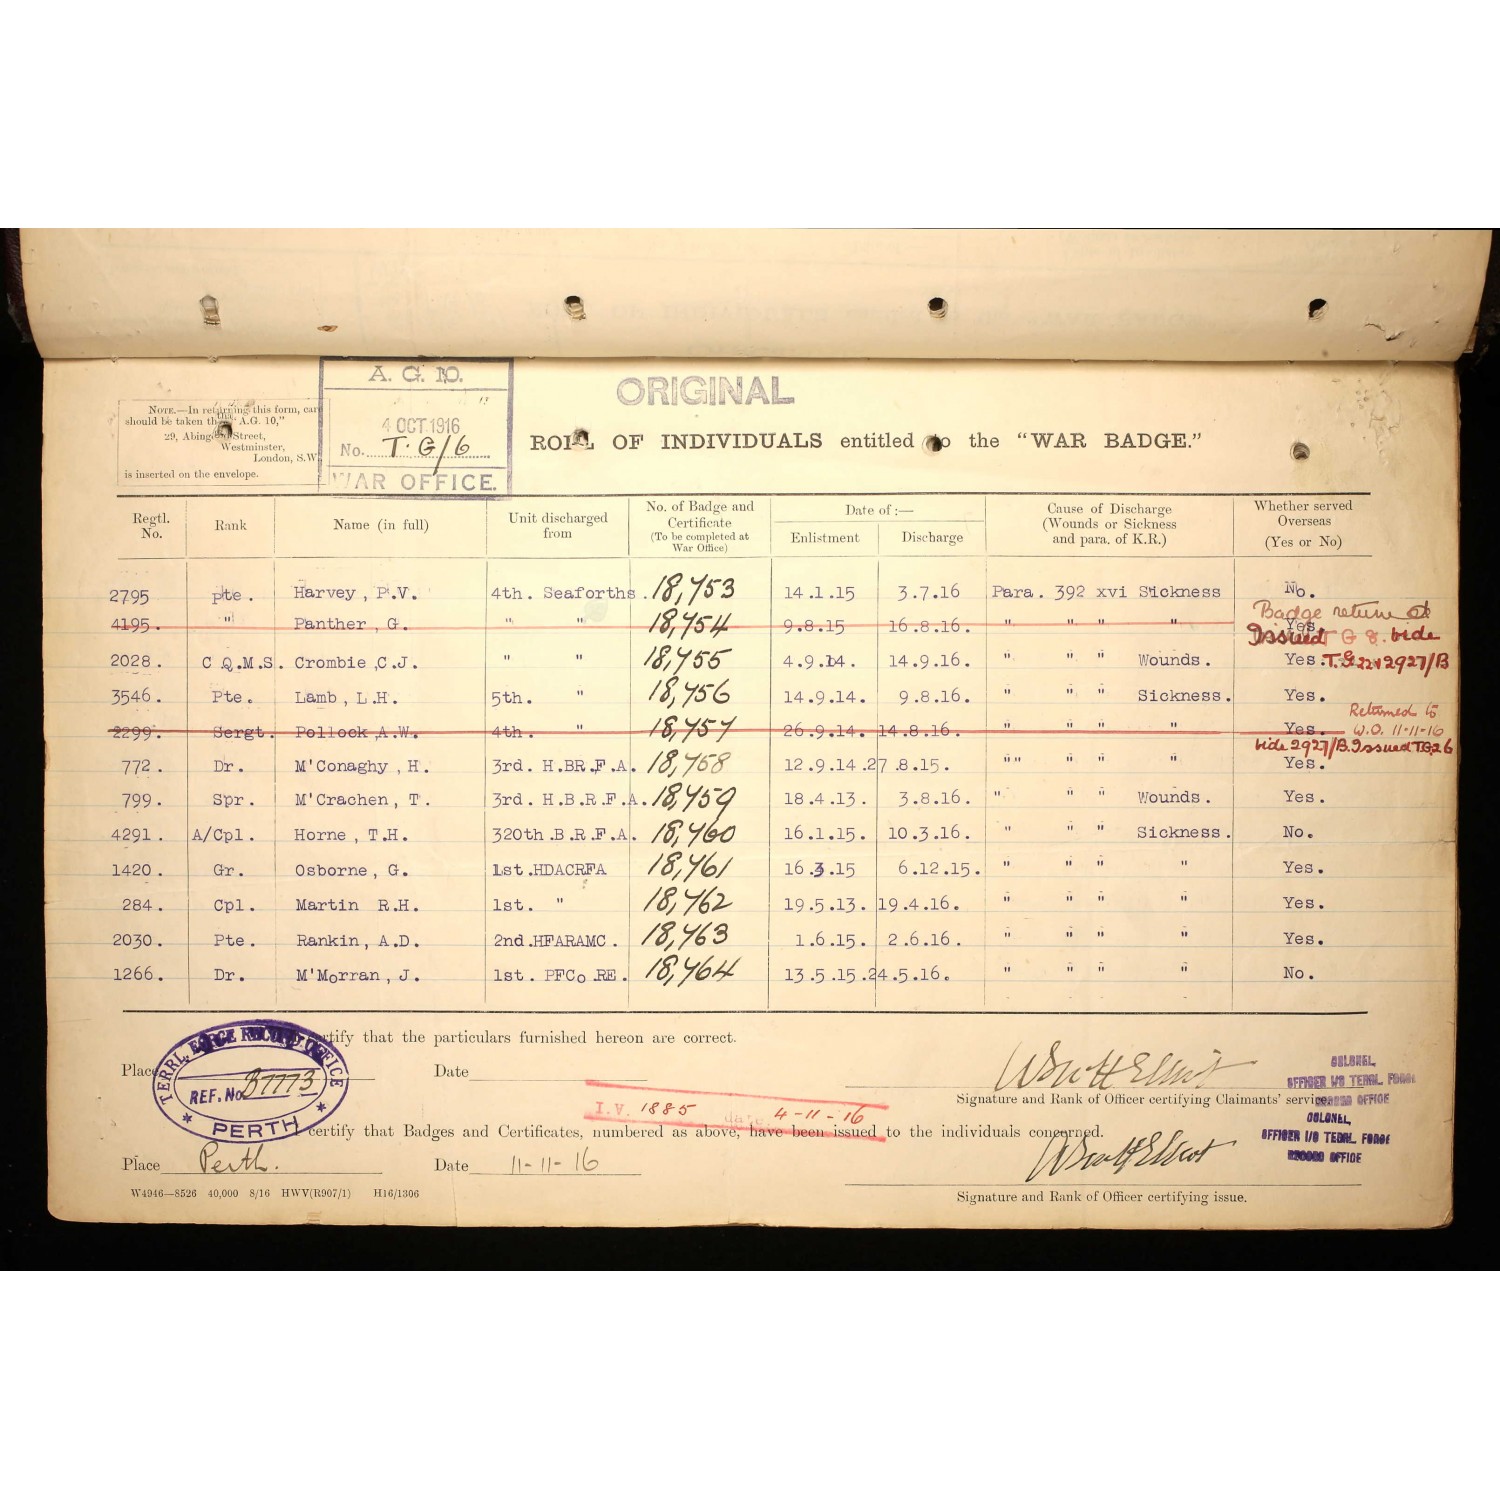 A. G. 10.
4 OCT 1916
No. T.G/6
WAR OFFICE.
ORIGINAL
NOTE.—In returning this form, car
should be taken th "A.G. 10,"
29, Abing Street,
Westminster,
London, S.W
is inserted on the envelope.
ROLL OF INDIVIDUALS entitled to the "WAR BADGE."
Regtl. No. Rank Name (in full) Unit discharged from No. of Badge and Certificate (To be completed at War Office) Date of :— Enlistment Discharge Cause of Discharge (Wounds or Sickness and para. of K.R.) Whether served Overseas (Yes or No)
2795 pte. Harvey, P.V. 4th. Seaforths. 18,753 14.1.15 3.7.16 Para. 392 xvi Sickness No.
Badge return
4195. " Panther, G. " " 18,754 9.8.15 16.8.16 " " " " Yes
Issued T G 8. vide
2028. C Q.M.S. Crombie, C.J. " " 18,755 4.9.14. 14.9.16. " " " Wounds. Yes. 2927/B
3546. Pte. Lamb, L.H. 5th. " 18,756 14.9.14. 9.8.16. " " " Sickness. Yes.
Returned to
2299. Sergt. Pollock A.W. 4th. " 18,757 26.9.14. 14.8.16. " " " " Yes. W.O. 11-11-16
vide 2927/B. Issued TG26
772. Dr. M'Conaghy, H. 3rd. H.BR.F.A. 18,758 12.9.14. 27.8.15. " " " " " Yes.
799. Spr. M'Crachen, T. 3rd. H.B.R.F.A. 18,759 18.4.13. 3.8.16. " " " Wounds. Yes.
4291. A/Cpl. Horne, T.H. 320th.B.R.F.A. 18,760 16.1.15. 10.3.16. " " " Sickness. No.
1420. Gr. Osborne, G. 1st.HDACRFA 18,761 16.3.15 6.12.15. " " " " Yes.
284. Cpl. Martin R.H. 1st. " 18,762 19.5.13. 19.4.16. " " " " Yes.
2030. Pte. Rankin, A.D. 2nd.HFARAMC. 18,763 1.6.15. 2.6.16. " " " " Yes.
1266. Dr. M'Morran, J. 1st. PFCo.RE. 18,764 13.5.15. 24.5.16. " " " " No.
certify that the particulars furnished hereon are correct.
Place Date
TERRL. FORCE RECORD OFFICE
REF. No. B7773
PERTH
Signature and Rank of Officer certifying Claimants' service.
COLONEL,
OFFICER I/C TERRL. FORCE
RECORD OFFICE
I.V. 1885 date 4-11-16
certify that Badges and Certificates, numbered as above, have been issued to the individuals concerned.
COLONEL,
OFFICER I/C TERRL. FORCE
RECORD OFFICE
Place Perth. Date 11-11-16
Signature and Rank of Officer certifying issue.
W4946—8526 40,000 8/16 HWV(R907/1) H16/1306